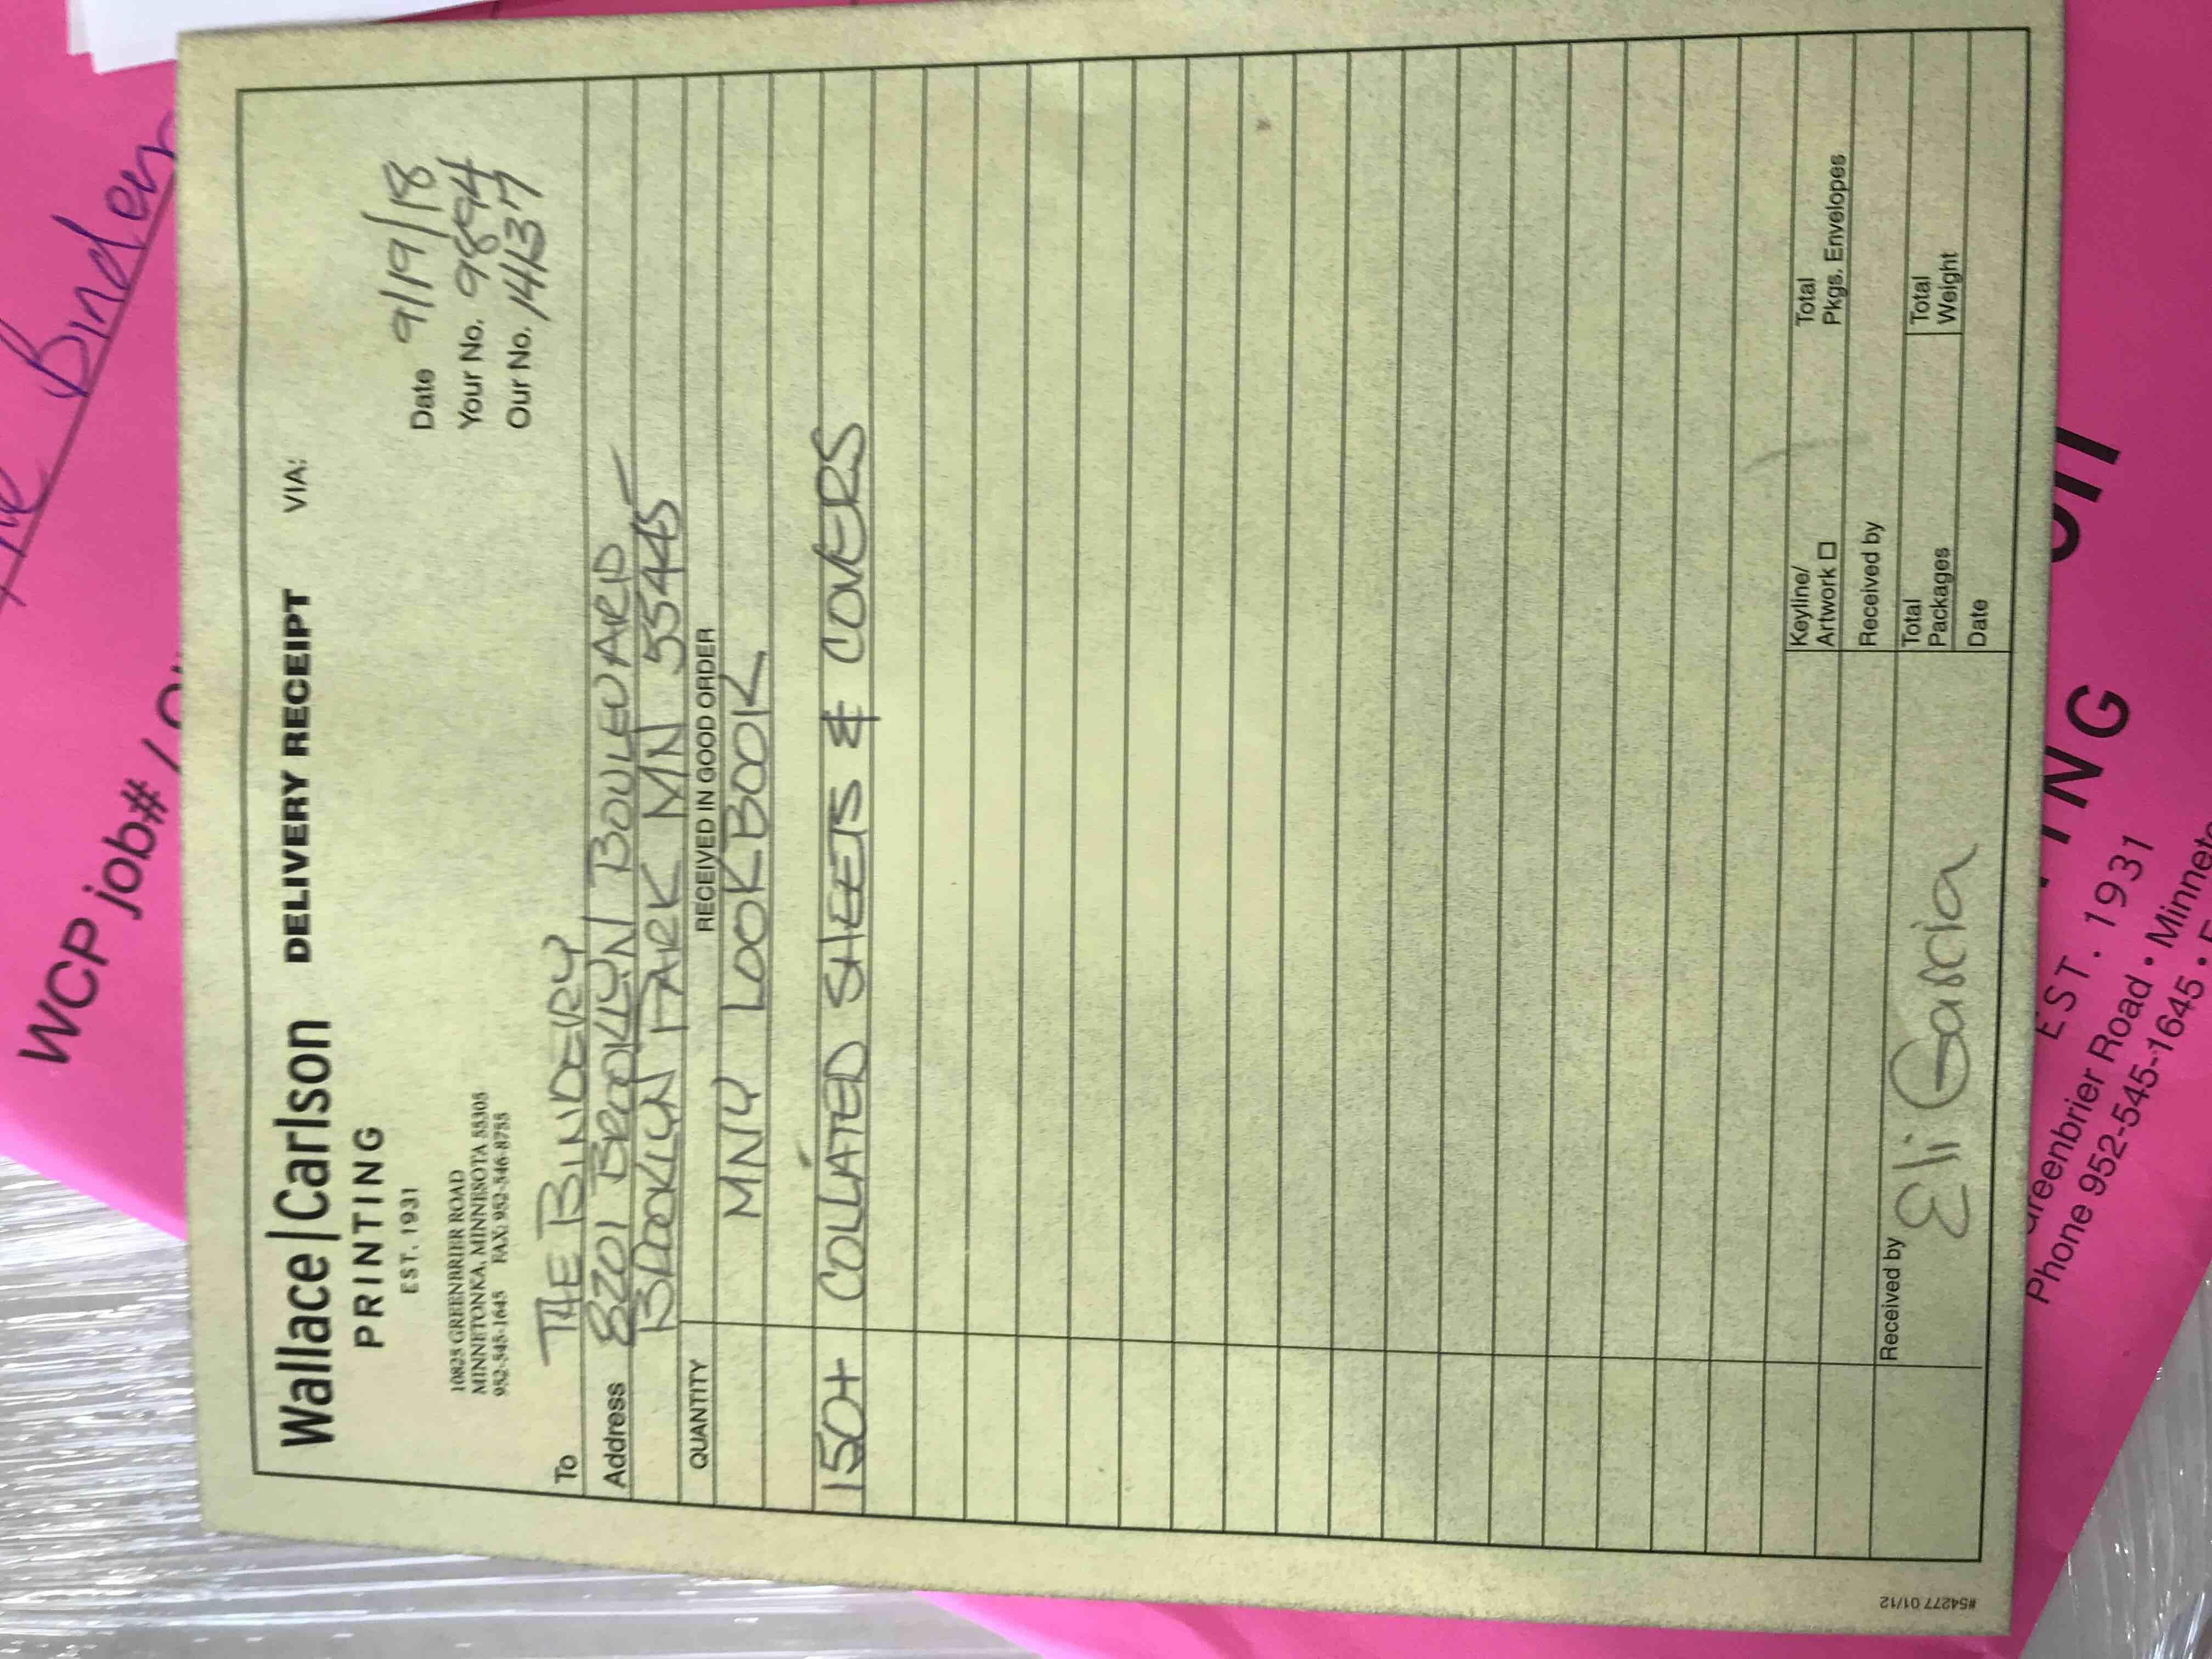 WCP job#
Binder
Wallace|Carlson DELIVERY RECEIPT VIA:
PRINTING
EST. 1931
Date 9/19/18
10825 GREENBRIER ROAD Your No. 9894
MINNETONKA, MINNESOTA 55305
952-545-1645 FAX: 952-546-8755 Our No. 14137
To THE BINDERY
Address 8201 BROOKLYN BOULEVARD
BROOKLYN PARK MN 55445
QUANTITY RECEIVED IN GOOD ORDER
MNY LOOKBOOK
150+ COLLATED SHEETS & COVERS
Keyline/ Total
Artwork Pkgs. Envelopes
Received by
Received by Eli Garcia
Total Total
Packages Weight
Date
#54277 01/12
EST. 1931
Greenbrier Road •
Phone 952-545-1645 •